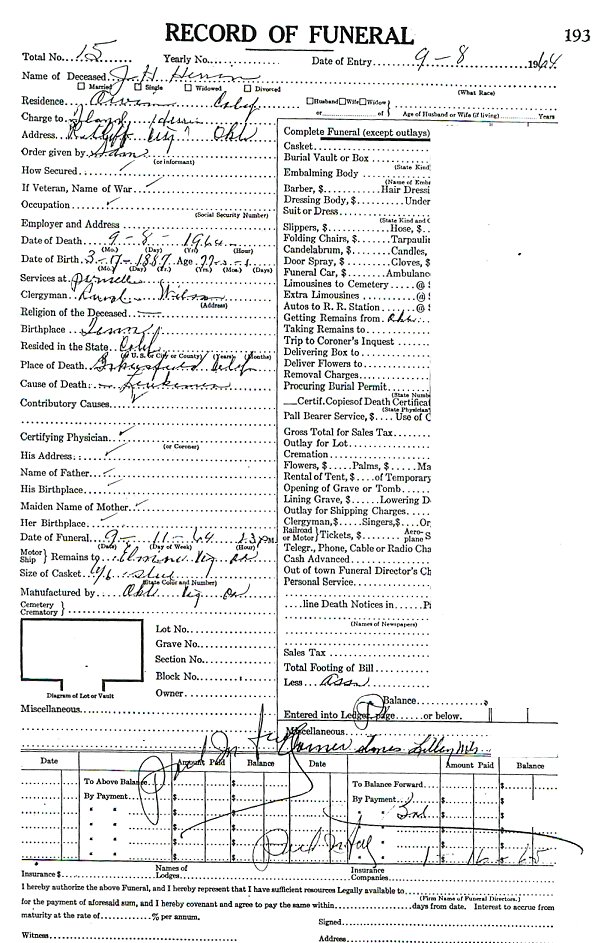 RECORD OF FUNERAL 193
Total No. 15 Yearly No. Date of Entry 9-8 1964
Name of Deceased J. H.
Married Single Widowed Divorced (What Race)
Residence Calif Husband Wife Widow
or of Age of Husband or Wife (if living) Years
Charge to Floyd
Address Okla
Order given by
(or informant)
How Secured
If Veteran, Name of War
Occupation
(Social Security Number)
Employer and Address
Date of Death 9-8-1964
(Mo.) (Day) (Yr.) (Hour)
Date of Birth 3-17-1887 Age
(Mo.) (Day) (Yr.) (Yrs.) (Mos.) (Days)
Services at
Clergyman Wilson
(Address)
Religion of the Deceased
Birthplace Tenn
Resided in the State Calif
(or U. S. or City or County) (Years) (Months)
Place of Death Bakersfield Calif
Cause of Death
Contributory Causes
Certifying Physician
(or Coroner)
His Address
Name of Father
His Birthplace
Maiden Name of Mother
Her Birthplace
Date of Funeral 9-11-64 PM
(Date) (Day of Week) (Hour)
Motor Ship Remains to
Size of Casket 6/6
(State Color and Number)
Manufactured by Okla
Cemetery Crematory
Lot No.
Grave No.
Section No.
Block No.
Owner
Diagram of Lot or Vault
Miscellaneous
Complete Funeral (except outlays)
Casket
Burial Vault or Box
(State Kind)
Embalming Body
(Name of Emb
Barber, $ Hair Dressi
Dressing Body, $ Under
Suit or Dress
(State Kind and C
Slippers, $ Hose, $
Folding Chairs, $ Tarpauli
Candelabrum, $ Candles,
Door Spray, $ Gloves, $
Funeral Car, $ Ambulanc
Limousines to Cemetery @ $
Extra Limousines @ $
Autos to R. R. Station @ $
Getting Remains from Okla
Taking Remains to
Trip to Coroner's Inquest
Delivering Box to
Deliver Flowers to
Removal Charges
Procuring Burial Permit
(State Numb
Certif. Copies of Death Certifica
(State Physician
Pall Bearer Service, $ Use of C
Gross Total for Sales Tax
Outlay for Lot
Cremation
Flowers, $ Palms, $ Ma
Rental of Tent, $ of Temporary
Opening of Grave or Tomb
Lining Grave, $ Lowering D
Outlay for Shipping Charges
Clergyman, $ Singers, $ Or
Railroad or Motor Tickets, $ Aero-plane S
Telegr., Phone, Cable or Radio Cha
Cash Advanced
Out of town Funeral Director's Ch
Personal Service
line Death Notices in P
(Names of Newspapers)
Sales Tax
Total Footing of Bill
Less Assn
Balance $
Entered into Ledger, page or below.
Miscellaneous
Date Amount Paid Balance Date Amount Paid Balance
To Above Balance To Balance Forward
By Payment $ $ By Payment $ $
Paid in full
Paid in full 1-16-65
Insurance $ Names of Lodges Insurance Companies
I hereby authorize the above Funeral, and I hereby represent that I have sufficient resources Legally available to
(Firm Name of Funeral Directors.)
for the payment of aforesaid sum, and I hereby covenant and agree to pay the same within days from date. Interest to accrue from
maturity at the rate of % per annum. Signed
Witness Address